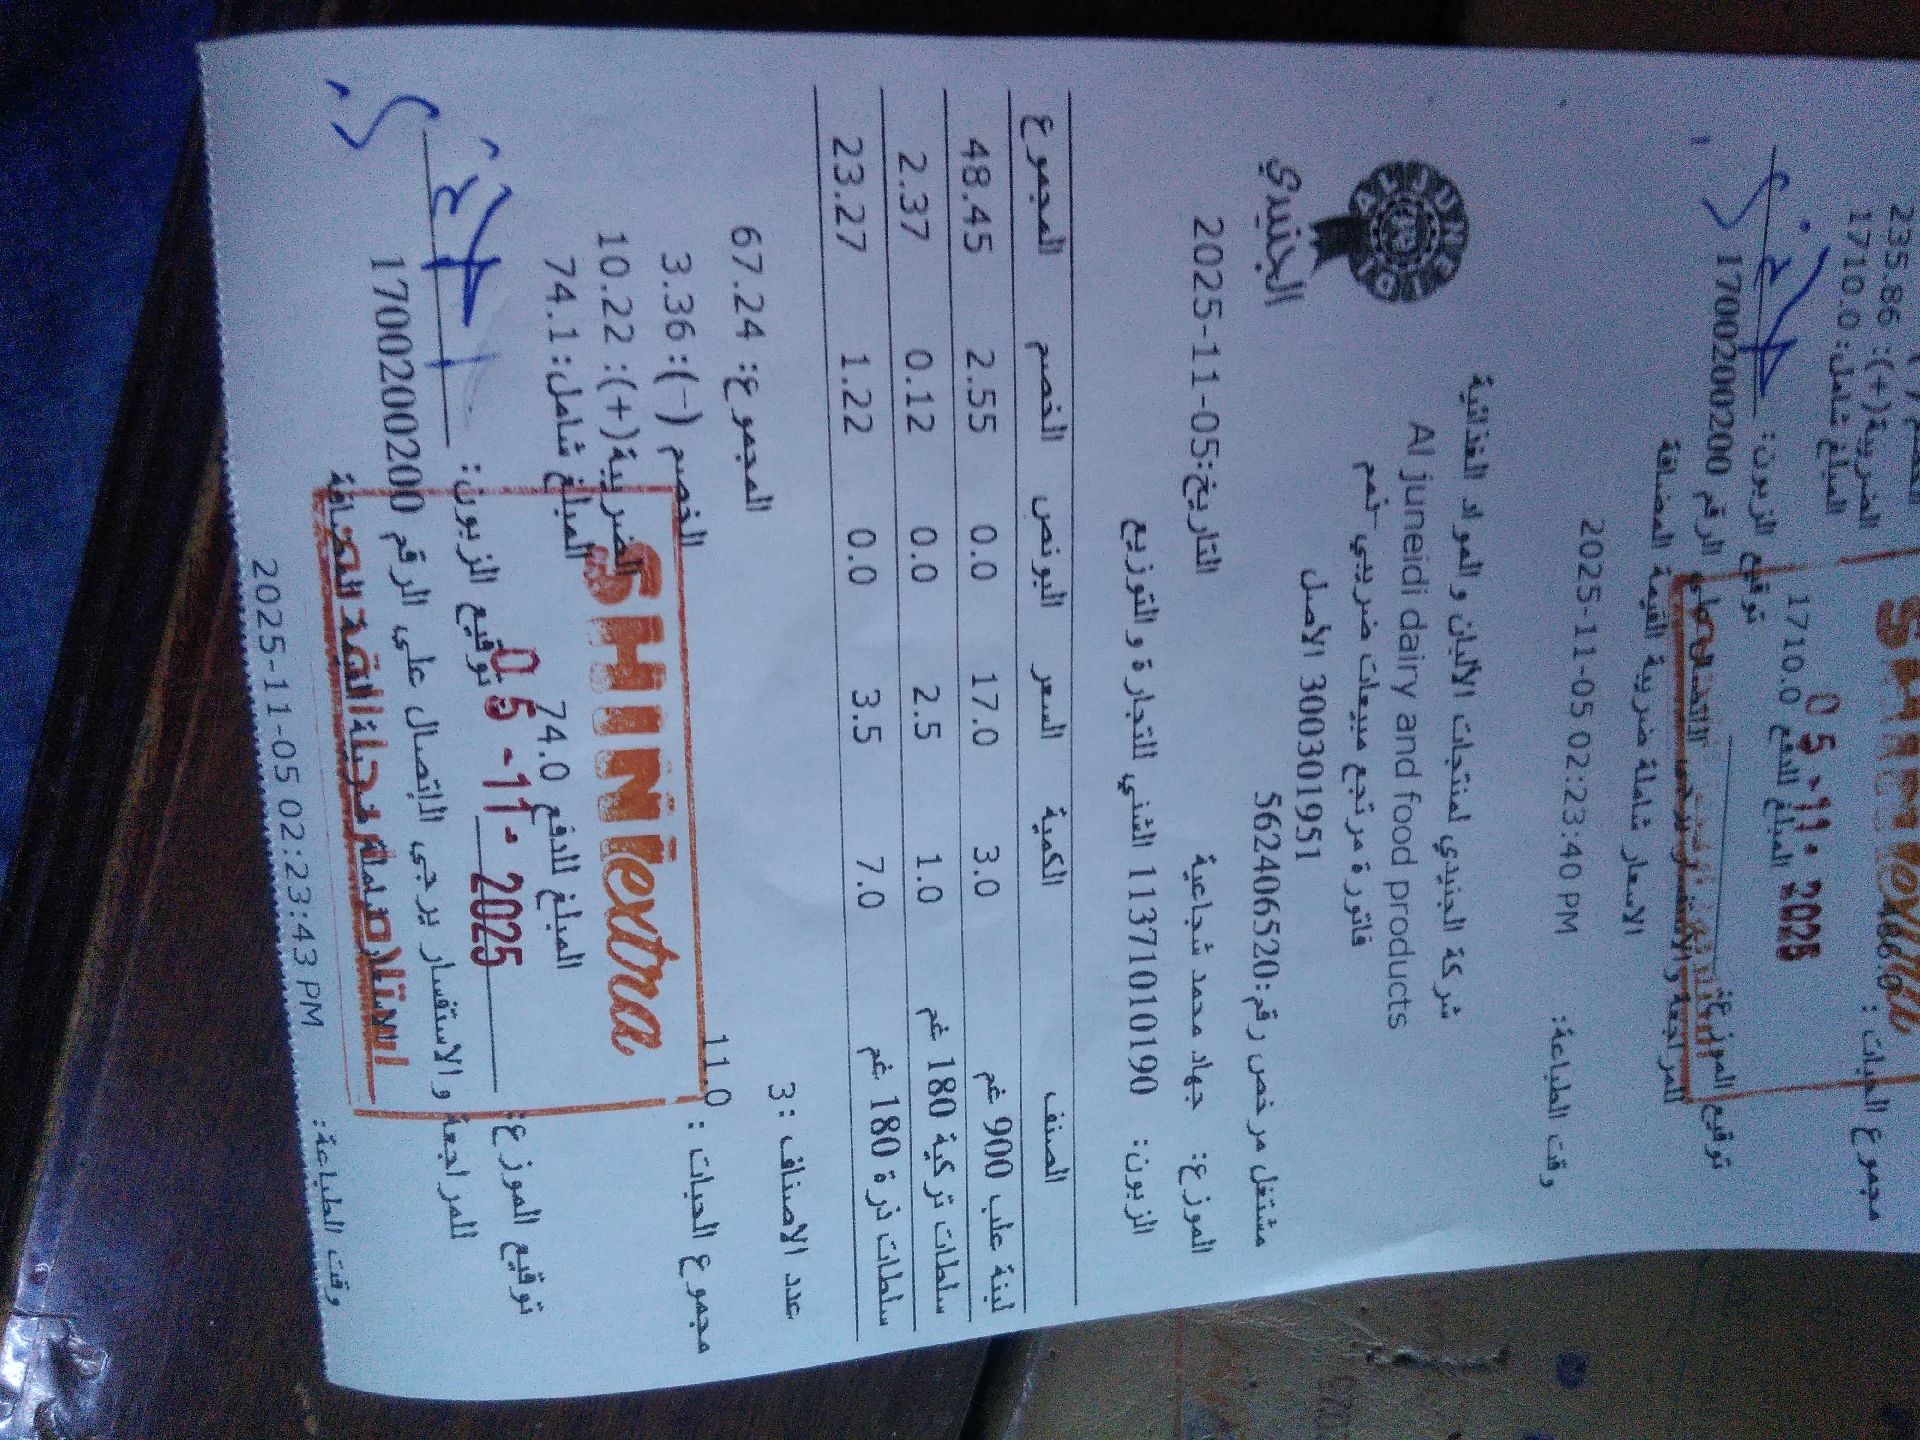 235.86 :(+)الضريبة
المبلغ شامل: 1710.0
مجموع الحبات :
1710.0 المبلغ للدفع
05-11-2025
توقيع الزبون:
توقيع الموزع:
الرقم 1700200200
للمراجعة والاستفسار يرجى
الاسعار شاملة ضريبة القيمة المضافة
وقت الطباعة: 2025-11-05 02:23:40 PM
AL JUNEIDI
الجنيدي
شركة الجنيدي لمنتجات الألبان والمواد الغذائية
Al juneidi dairy and food products
فاتورة مرتجع مبيعات ضريبي-
3003301951 الأصل
مشتغل مرخص رقم:562406520
الموزع: جهاد محمد شجاعية
التاريخ:2025-11-05
الزبون: 1137101010190 الشني للتجارة والتوزيع
الصنف الكمية السعر البونص الخصم المجموع
لبنة علب 900 غم 3.0 17.0 0.0 2.55 48.45
سلطات تركية 180 غم 1.0 2.5 0.0 0.12 2.37
سلطات ذرة 180 غم 7.0 3.5 0.0 1.22 23.27
عدد الاصناف :3
المجموع: 67.24
مجموع الحبات : 11.0
الخصم (-): 3.36
الضريبة(+): 10.22
المبلغ شامل: 74.1
SHINIextra
المبلغ للدفع 74.0
05-11-2025
توقيع الموزع:
توقيع الزبون:
للمراجعة والاستفسار يرجى الاتصال على الرقم 1700200200
وقت الطباعة: 2025-11-05 02:23:43 PM